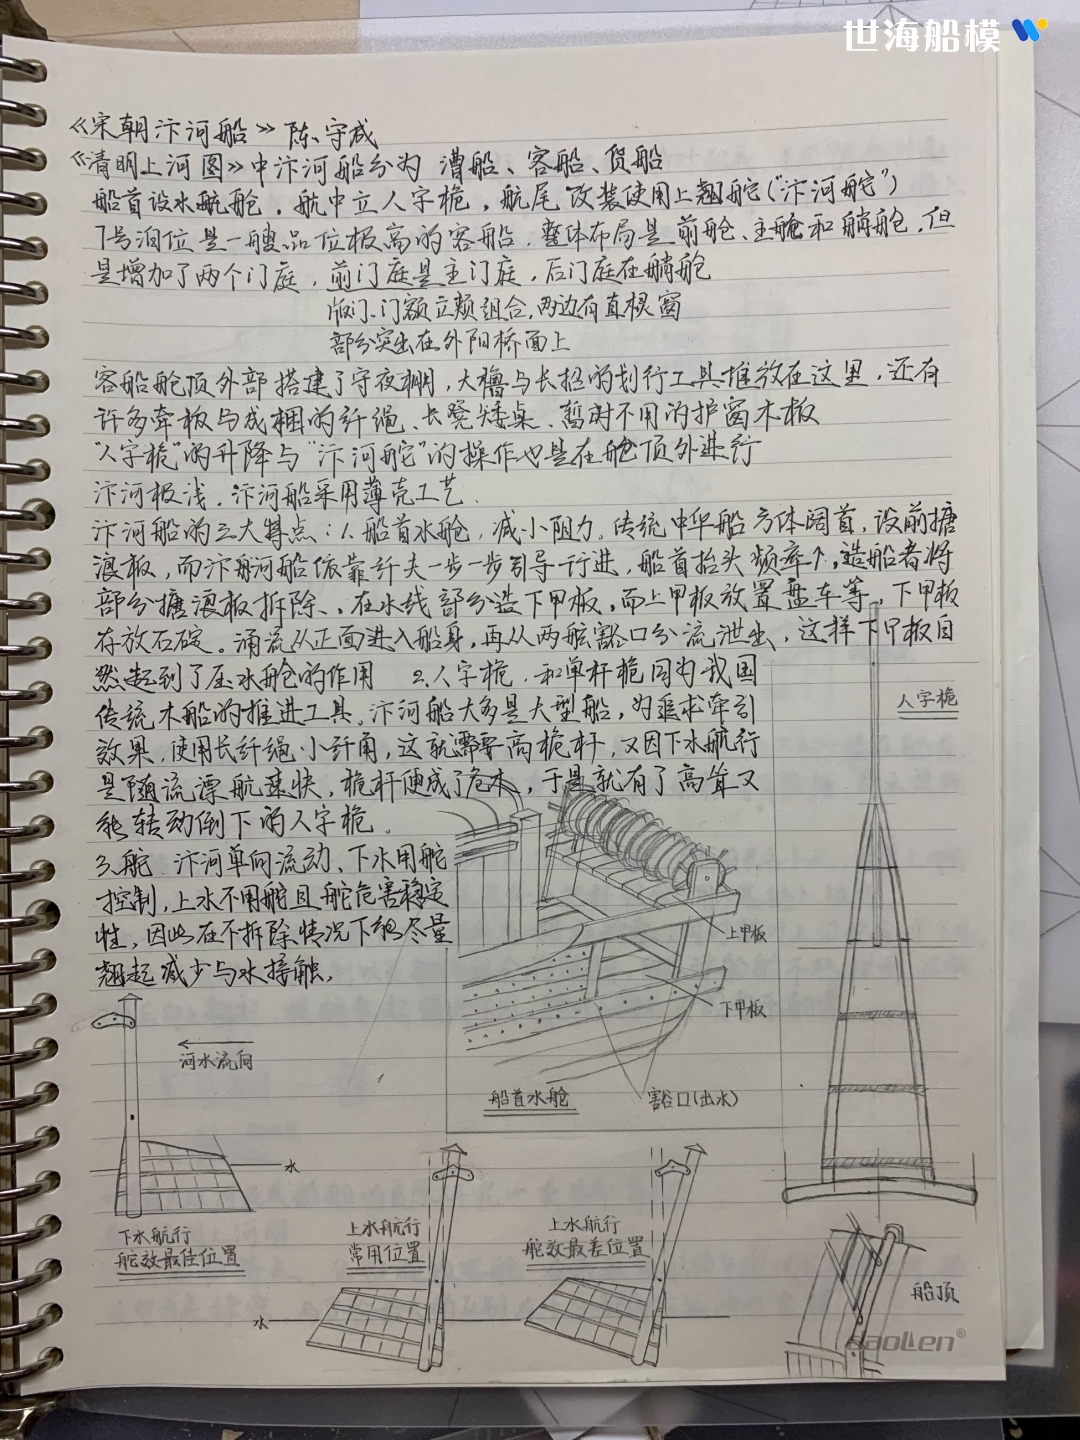 世海船模
《宋朝汴河船》 陈守成
《清明上河图》中汴河船分为 漕船、客船、货船
船首设水航舱，航中立人字桅，航尾改装使用上翘舵("汴河舵")
7号泊位是一艘品位极高的客船，整体布局是前舱、主舱和艄舱，但
是增加了两个门庭，前门庭是主门庭，后门庭在艄舱
版门、门额立颊组合，两边有直棂窗
部分突出在外阳桥面上
客船舱顶外部搭建了守夜棚，大橹与长招的划行工具堆放在这里，还有
许多牵板与成捆的纤绳、长凳矮桌、暂时不用的护窗木板
"人字桅"的升降与"汴河舵"的操作也是在舱顶外进行
汴河极浅，汴河船采用薄壳工艺
汴河船的三大特点：1、船首水舱，减小阻力，传统中华船方体阔首，设前搪
浪板，而汴河船依靠纤夫一步一步引导行进，船首抬头频率个，造船者将
部分搪浪板拆除、，在水线部分造下甲板，而上甲板放置盘车等，下甲板
存放石碇。涌流从正面进入船身，再从两舷豁口分流泄出，这样下甲板自
然起到了压水舱的作用 2、人字桅，和单杆桅同为我国
传统木船的推进工具，汴河船大多是大型船，为追求牵引
效果，使用长纤绳小纤角，这就需要高桅杆，又因下水航行
是随流漂航速快，桅杆便成了危木，于是就有了高耸又
能转动倒下的人字桅。
3、舵 汴河单向流动、下水用舵
控制，上水不用舵且舵危害稳定
性，因此在不拆除情况下能尽量
翘起减少与水接触，
人字桅
上甲板
下甲板
河水流向
船首水舱
豁口(出水)
水
下水航行
舵效最佳位置
上水航行
常用位置
上水航行
舵效最差位置
水
船顶